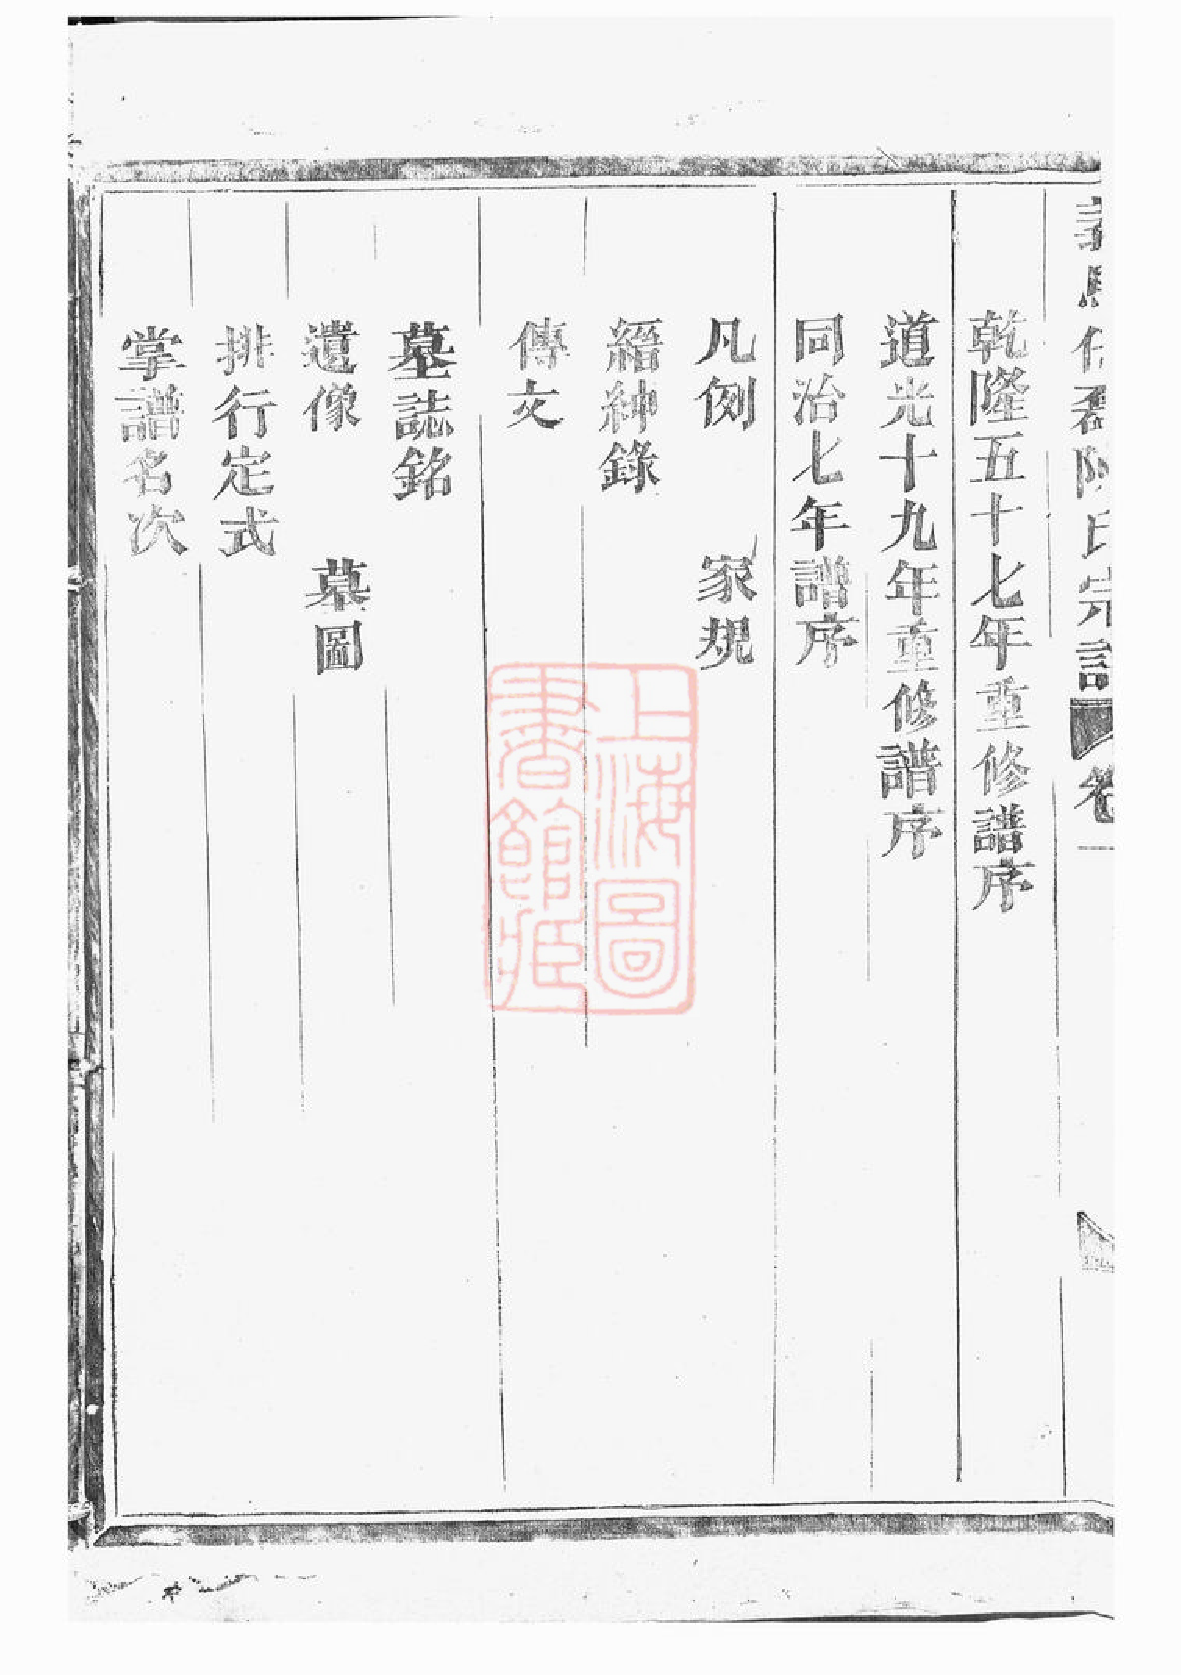 陳氏宗譜 卷一
乾隆五十七年重修譜序
道光十九年重修譜序
同治七年譜序
凡例 家規
縉紳錄
傳文
墓誌銘
遺像 墓圖
排行定式
掌譜名次
上海圖書館藏